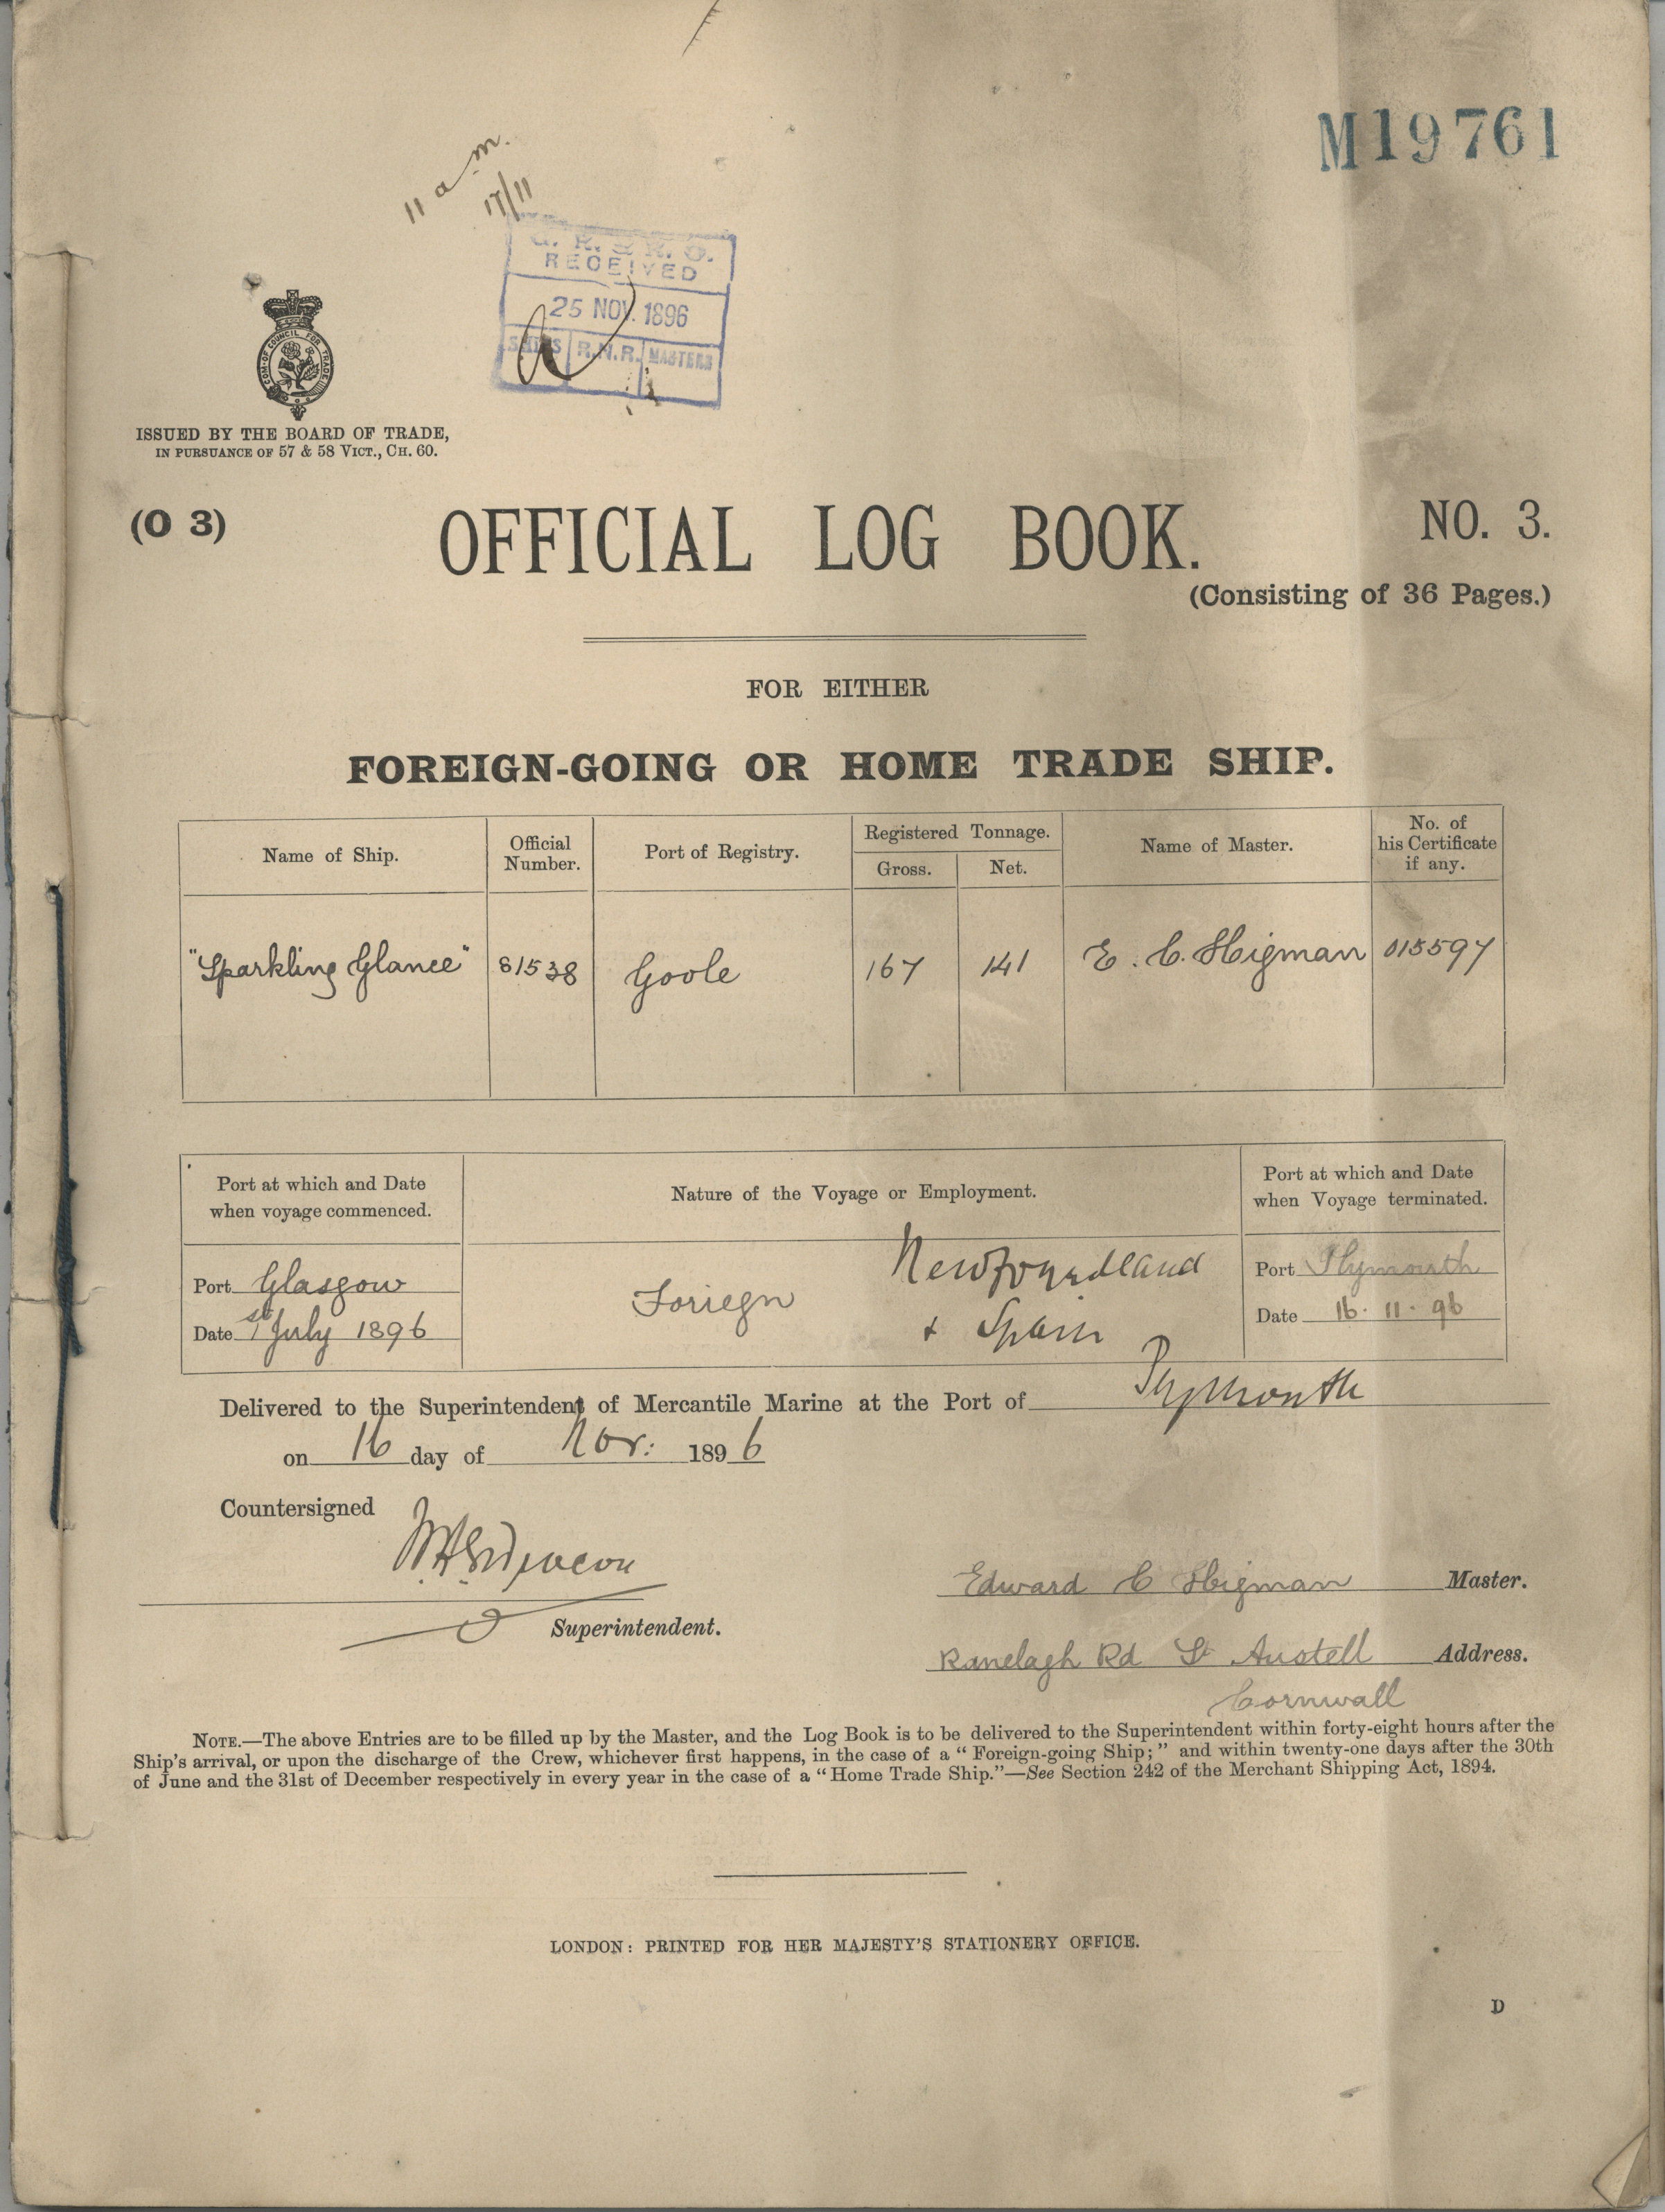 M19761
11 a.m.
17/11
G. R. & R. O.
RECEIVED
25 NOV. 1896
SHIPS R.N.R. MASTERS
COM. OF COUNCIL FOR TRADE
ISSUED BY THE BOARD OF TRADE,
IN PURSUANCE OF 57 & 58 VICT., CH. 60.
(O 3) OFFICIAL LOG BOOK. NO. 3.
(Consisting of 36 Pages.)
FOR EITHER
FOREIGN-GOING OR HOME TRADE SHIP.
Name of Ship. Official Number. Port of Registry. Registered Tonnage. Gross. Net. Name of Master. No. of his Certificate if any.
"Sparkling Glance" 81538 Goole 167 141 E. C. Higman 015597
Port at which and Date when voyage commenced. Nature of the Voyage or Employment. Port at which and Date when Voyage terminated.
Port Glasgow Foriegn Newfoundland Port Plymouth
Date 1st July 1896 + Spain Date 16. 11. 96
Delivered to the Superintendent of Mercantile Marine at the Port of Plymouth
on 16 day of Nov: 1896
Countersigned
Edward C Higman Master.
Superintendent.
Ranelagh Rd St Austell Address.
Cornwall
NOTE.—The above Entries are to be filled up by the Master, and the Log Book is to be delivered to the Superintendent within forty-eight hours after the
Ship's arrival, or upon the discharge of the Crew, whichever first happens, in the case of a "Foreign-going Ship;" and within twenty-one days after the 30th
of June and the 31st of December respectively in every year in the case of a "Home Trade Ship."—See Section 242 of the Merchant Shipping Act, 1894.
LONDON: PRINTED FOR HER MAJESTY'S STATIONERY OFFICE.
D